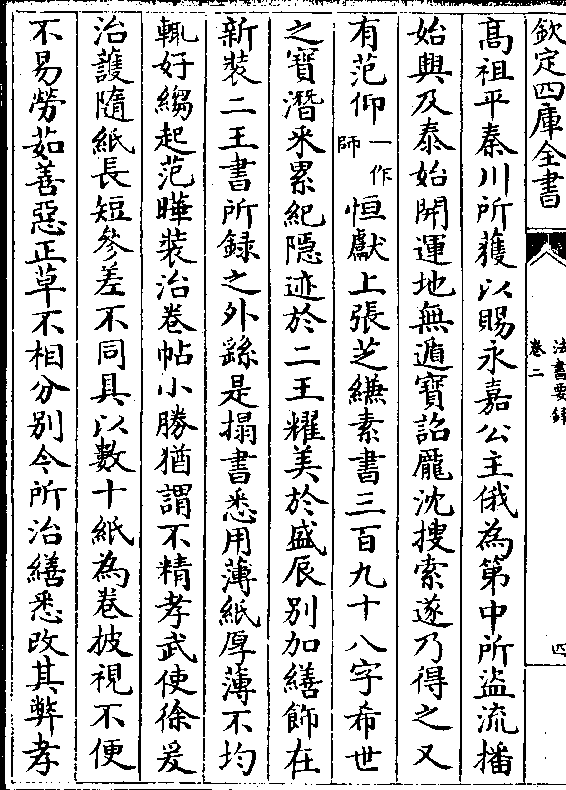 欽定四庫全書
法書要録
卷二
四
髙祖平秦川所獲以賜永嘉公主俄為第中所盜流播
始興及泰始開運地無遁寶詔龎沈搜索遂乃得之又
有范仰一作師恒獻上張芝縑素書三百九十八字希世
之寶潛采累紀隱迹於二王耀美於盛辰别加繕飾在
新裝二王書所録之外繇是搨書悉用薄紙厚薄不均
輒好縐起范曄裝治卷帖小勝猶謂不精孝武使徐爰
治護隨紙長短參差不同具以數十紙為卷披視不便
不易勞茹善惡正草不相分别今所治繕悉改其弊孝